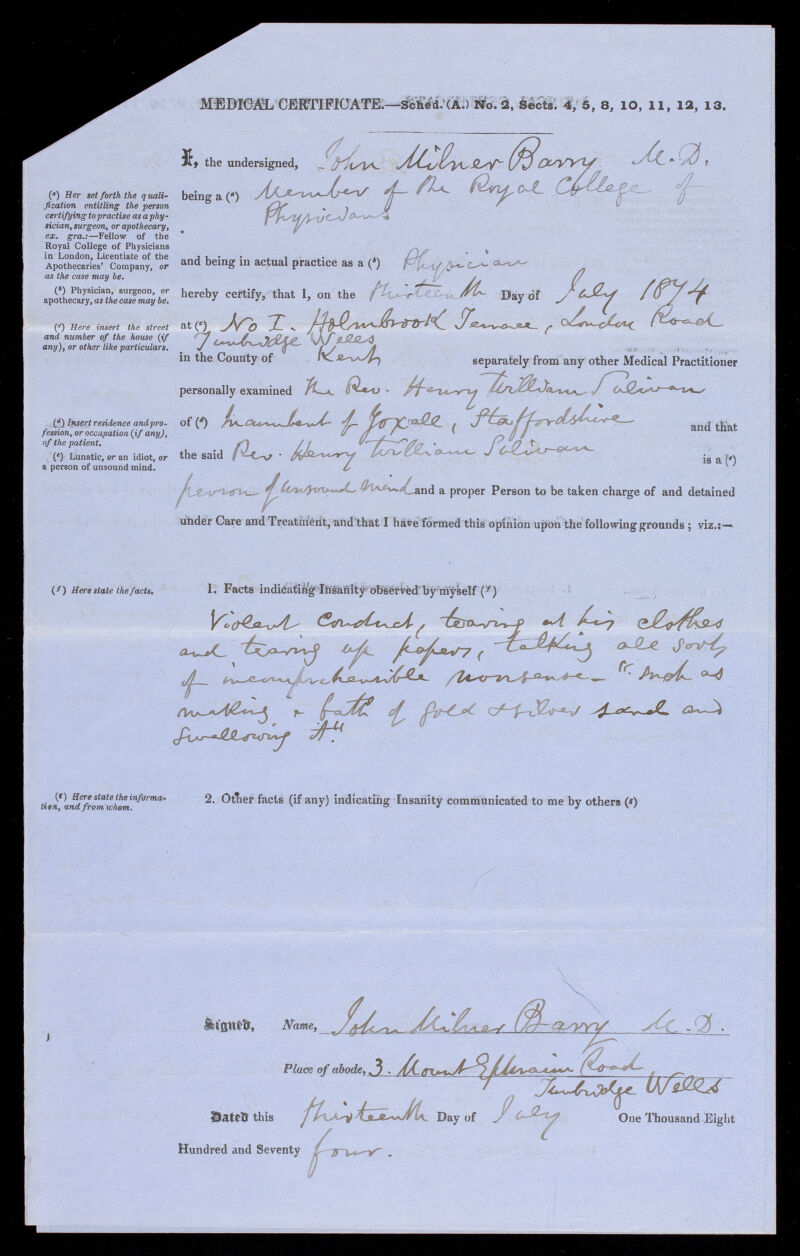 MEDICAL CERTIFICATE.—Sched. (A.) No. 2, Sects. 4, 5, 8, 10, 11, 12, 13.
I, the undersigned, John Milner Barry M.D.
being a (a) Member of the Royal College of
Physicians
and being in actual practice as a (b) Physician
hereby certify, that I, on the thirteenth Day of July 1874
at (c) No I. Holmbrook Terrace, London Road
Tunbridge Wells
in the County of Kent separately from any other Medical Practitioner
personally examined the Rev. Henry William Sulivan
of (d) Incumbent of Yoxall, Staffordshire and that
the said Rev. Henry William Sulivan is a (e)
person of unsound mind and a proper Person to be taken charge of and detained
under Care and Treatment, and that I have formed this opinion upon the following grounds; viz.:—
(a) Her set forth the quali-
fication entitling the person
certifying to practise as a phy-
sician, surgeon, or apothecary,
ex. gra.:—Fellow of the
Royal College of Physicians
in London, Licentiate of the
Apothecaries' Company, or
as the case may be.
(b) Physician, surgeon, or
apothecary, as the case may be.
(c) Here insert the street
and number of the house (if
any), or other like particulars.
(d) Insert residence and pro-
fession, or occupation (if any),
of the patient.
(e) Lunatic, or an idiot, or
a person of unsound mind.
(f) Here state the facts.
1. Facts indicating Insanity observed by myself (f)
Violent conduct, tearing at his clothes
and tearing up papers, talking all sorts
of incomprehensible nonsense - "such as
making a bath of gold & silver sand and
swallowing it."
(g) Here state the informa-
tion, and from whom.
2. Other facts (if any) indicating Insanity communicated to me by others (g)
Signed, Name, John Milner Barry M.D.
Place of abode, 3. Mount Ephraim Road
Tunbridge Wells
Dated this thirteenth Day of July One Thousand Eight
Hundred and Seventy four.